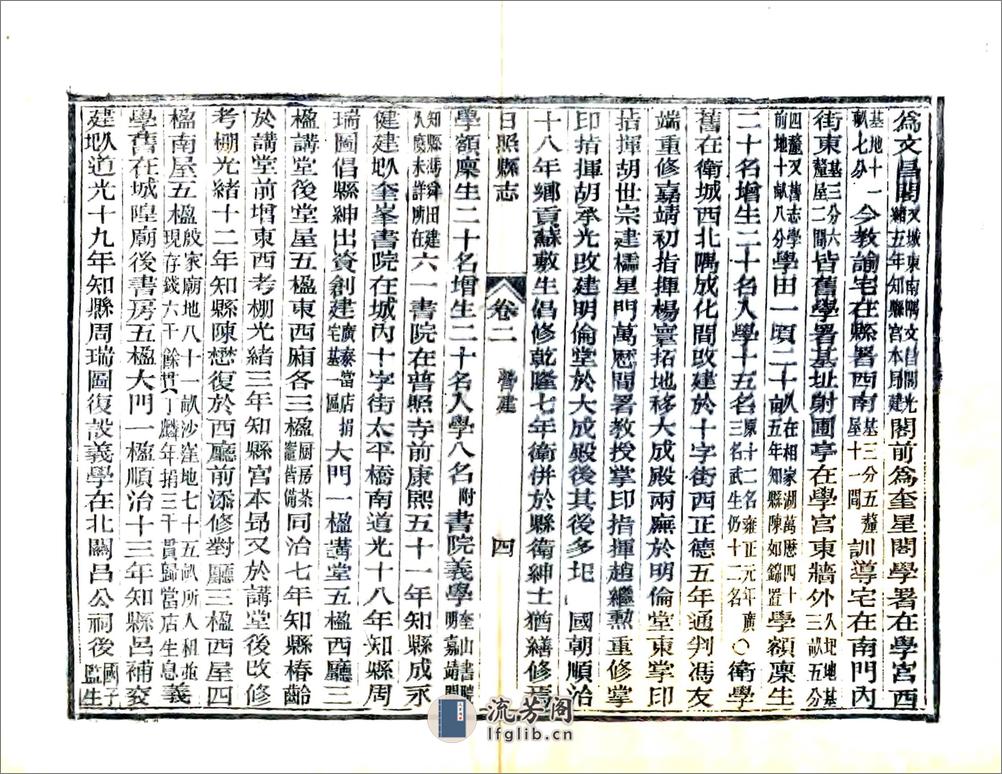 為文昌閣又城東南隅文昌閣光緒五年知縣宮本昂建閣前為奎星閣學署在學宮西
基地十一畝七分今教諭宅在縣署西南基三分五釐屋十一間訓導宅在南門內
街東基三分六釐屋二間皆舊學署基址射圃亭在學宮東牆外久圮地基三畝五分
四釐又舊志學前地十畝八分學田一頃二十畝久在相家湖萬歷四十五年知縣陳如錦置學額廩生
二十名增生二十名入學十五名原十二名雍正元年廣三名武生仍十二名〇衛學
舊在衛城西北隅成化間改建於十字街西正德五年通判馮友
端重修嘉靖初指揮楊寰拓地移大成殿兩廡於明倫堂東掌印
指揮胡世宗建櫺星門萬歷間署教授掌印指揮趙繼勲重修掌
印指揮胡承光改建明倫堂於大成殿後其後多圮 國朝順治
十八年鄉貢蘇敷生倡修乾隆七年衛併於縣衛紳士猶繕修焉
日照縣志 卷二 營建 四
學額廩生二十名增生二十名入學八名附書院義學奎山書院明嘉靖間
知縣馮舜田建久廢未詳所在六一書院在普照寺前康熙五十一年知縣成永
健建久圮奎峯書院在城內十字街太平橋南道光十八年知縣周
瑞圖倡縣紳出資創建廣泰當店捐宅基一區大門一楹講堂五楹西廳三
楹講堂後堂屋五楹東西廂各三楹厨房茶竈皆備同治七年知縣椿齡
於講堂前增東西考棚光緒三年知縣宮本昂又於講堂後改修
考棚光緒十二年知縣陳懋復於西廳前添修對廳三楹西屋四
楹南屋五楹殷家廟地八十一畝沙窪地七十五畝所人租並現存錢六千餘貫丁麟年捐三千貫歸當店生息義
學舊在城隍廟後書房五楹大門一楹順治十三年知縣呂補袞
建久圮道光十九年知縣周瑞圖復設義學在北關呂公祠後國子監生
流芳閣
lfglib.cn